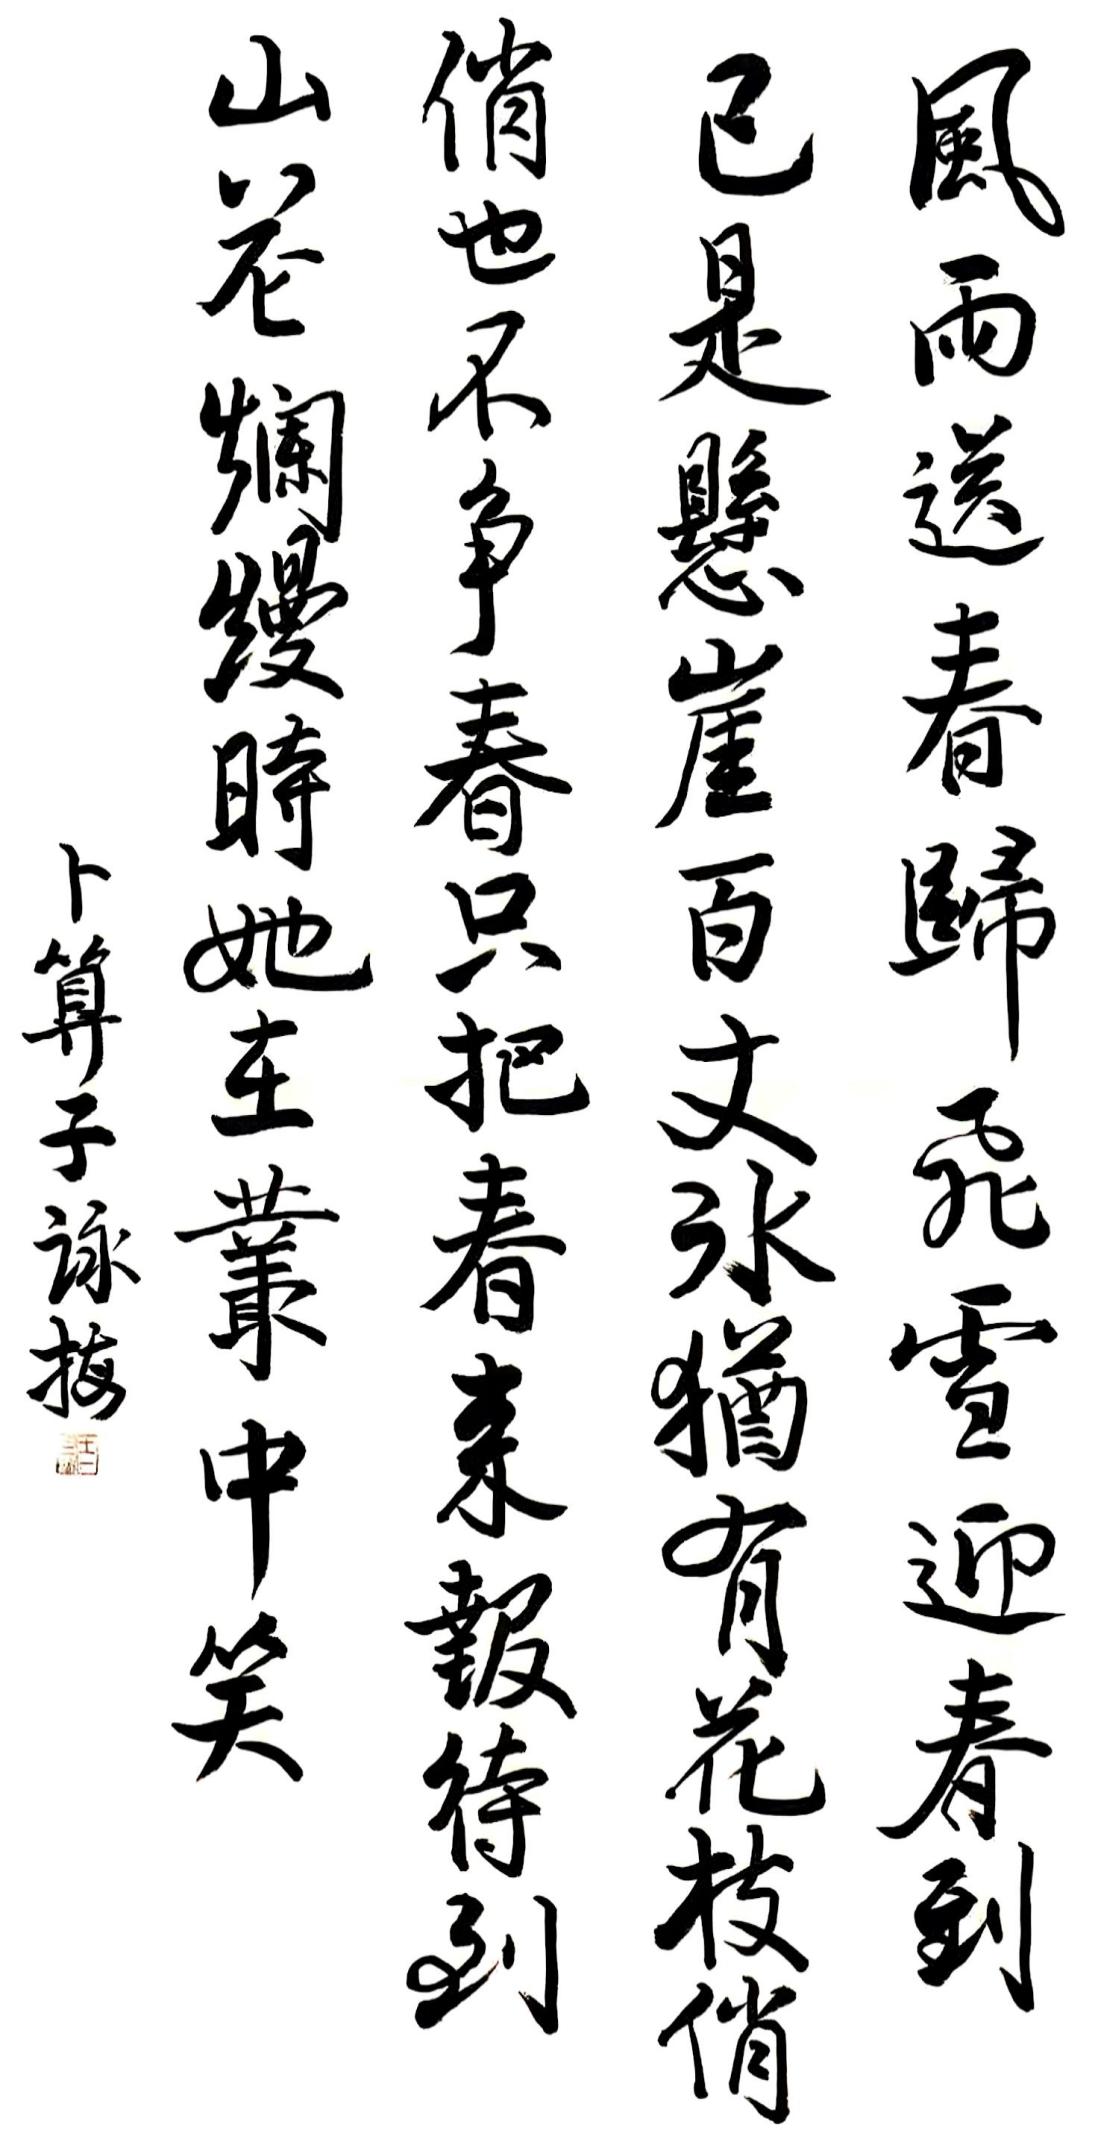 風雨送春歸飛雪迎春到
已是懸崖百丈冰猶有花枝俏
俏也不争春只把春来報待到
山花爛熳時她在叢中笑
卜算子詠梅